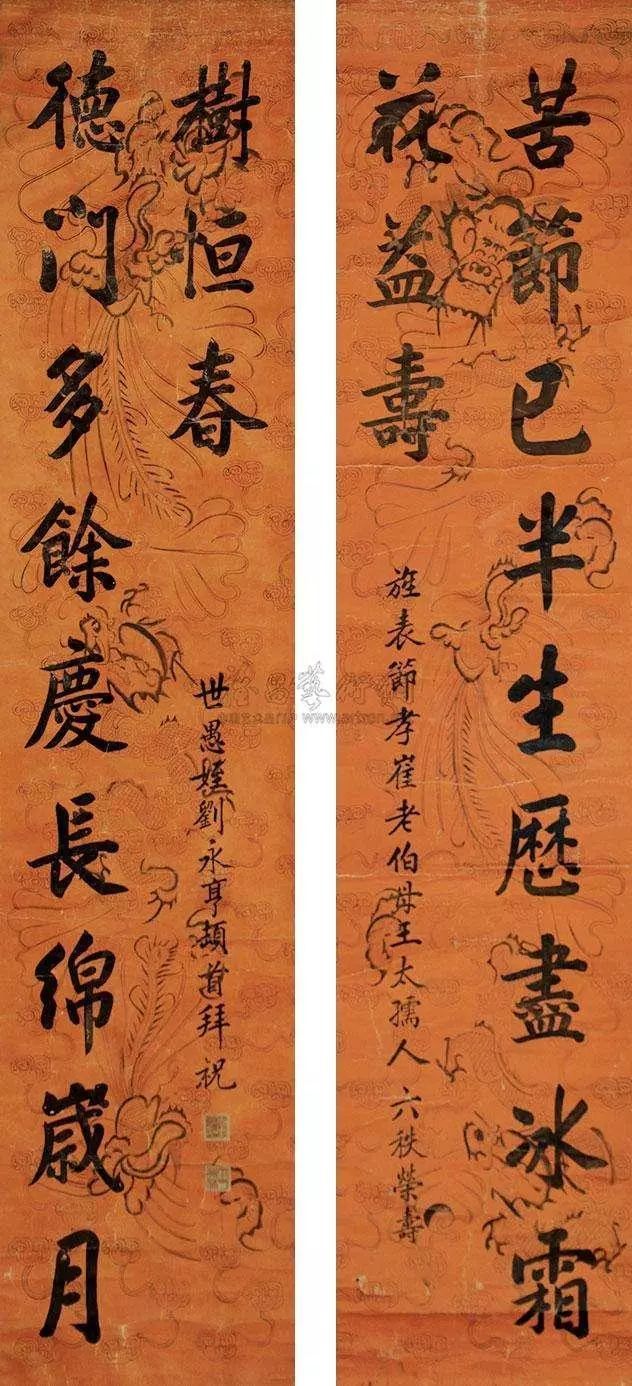 苦節已半生歷盡冰霜
花益壽
旌表節孝崔老伯母王太孺人六秩榮壽
德門多餘慶長綿歲月
樹恒春
世愚姪劉永亨頓首拜祝